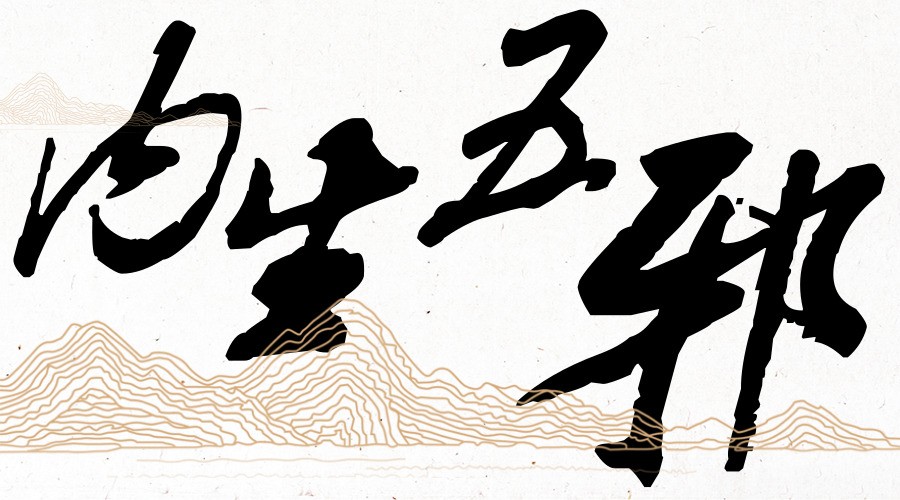 内生五邪